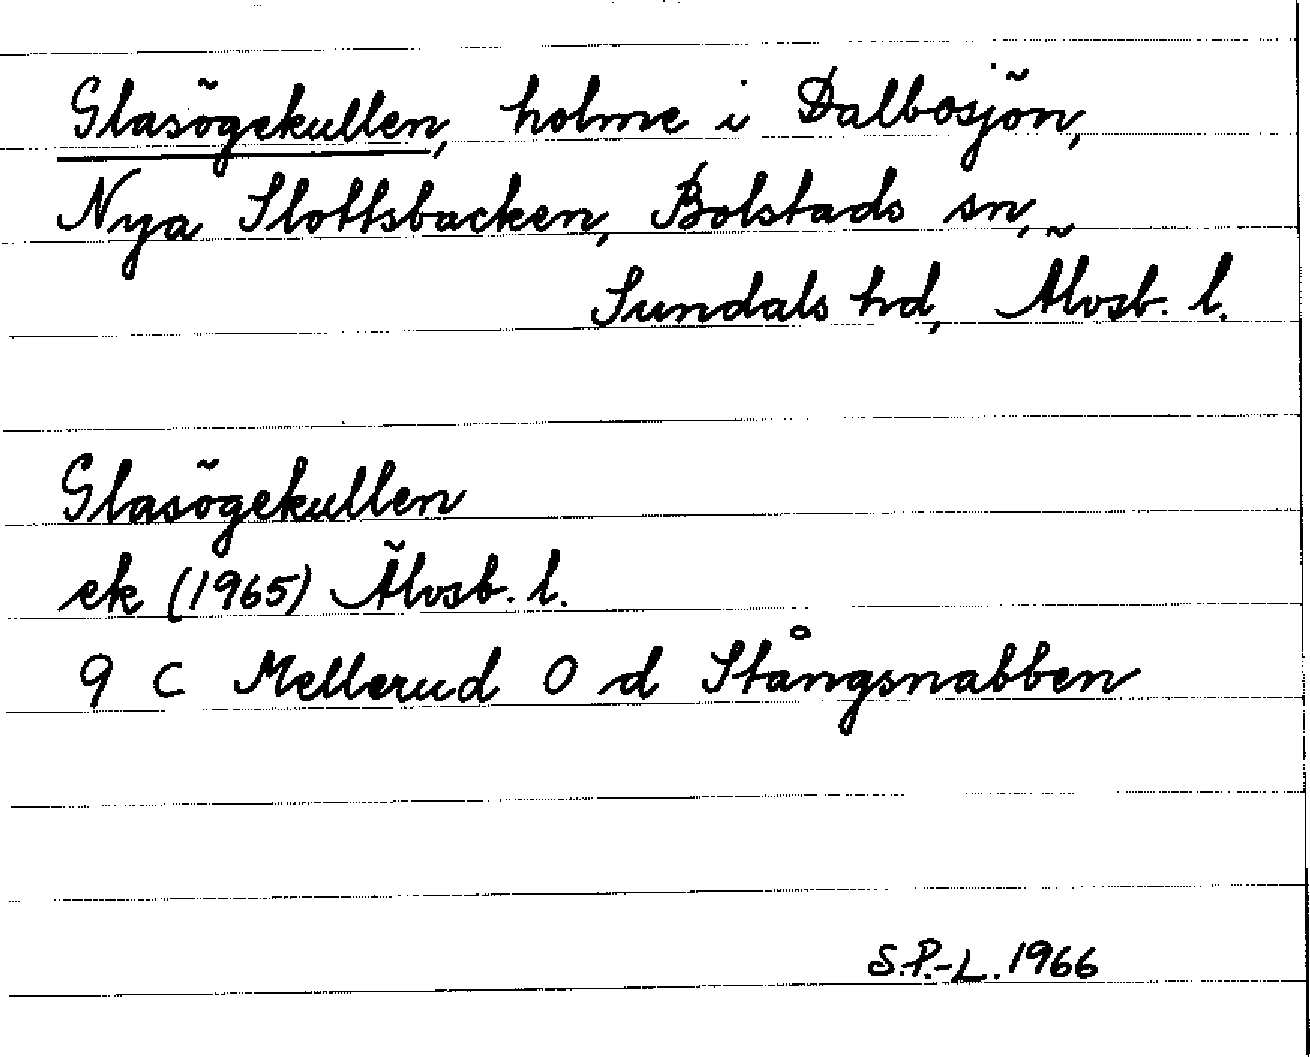 Glasögekullen, holme i Dalbosjön,
Nya Slottsbacken, Bolstads sn,
Sundals hd, Älvsb. l.
Glasögekullen
ek (1965) Älvsb. l.
9 C Mellerud 0 d Stångsnabben
S.P.-L. 1966